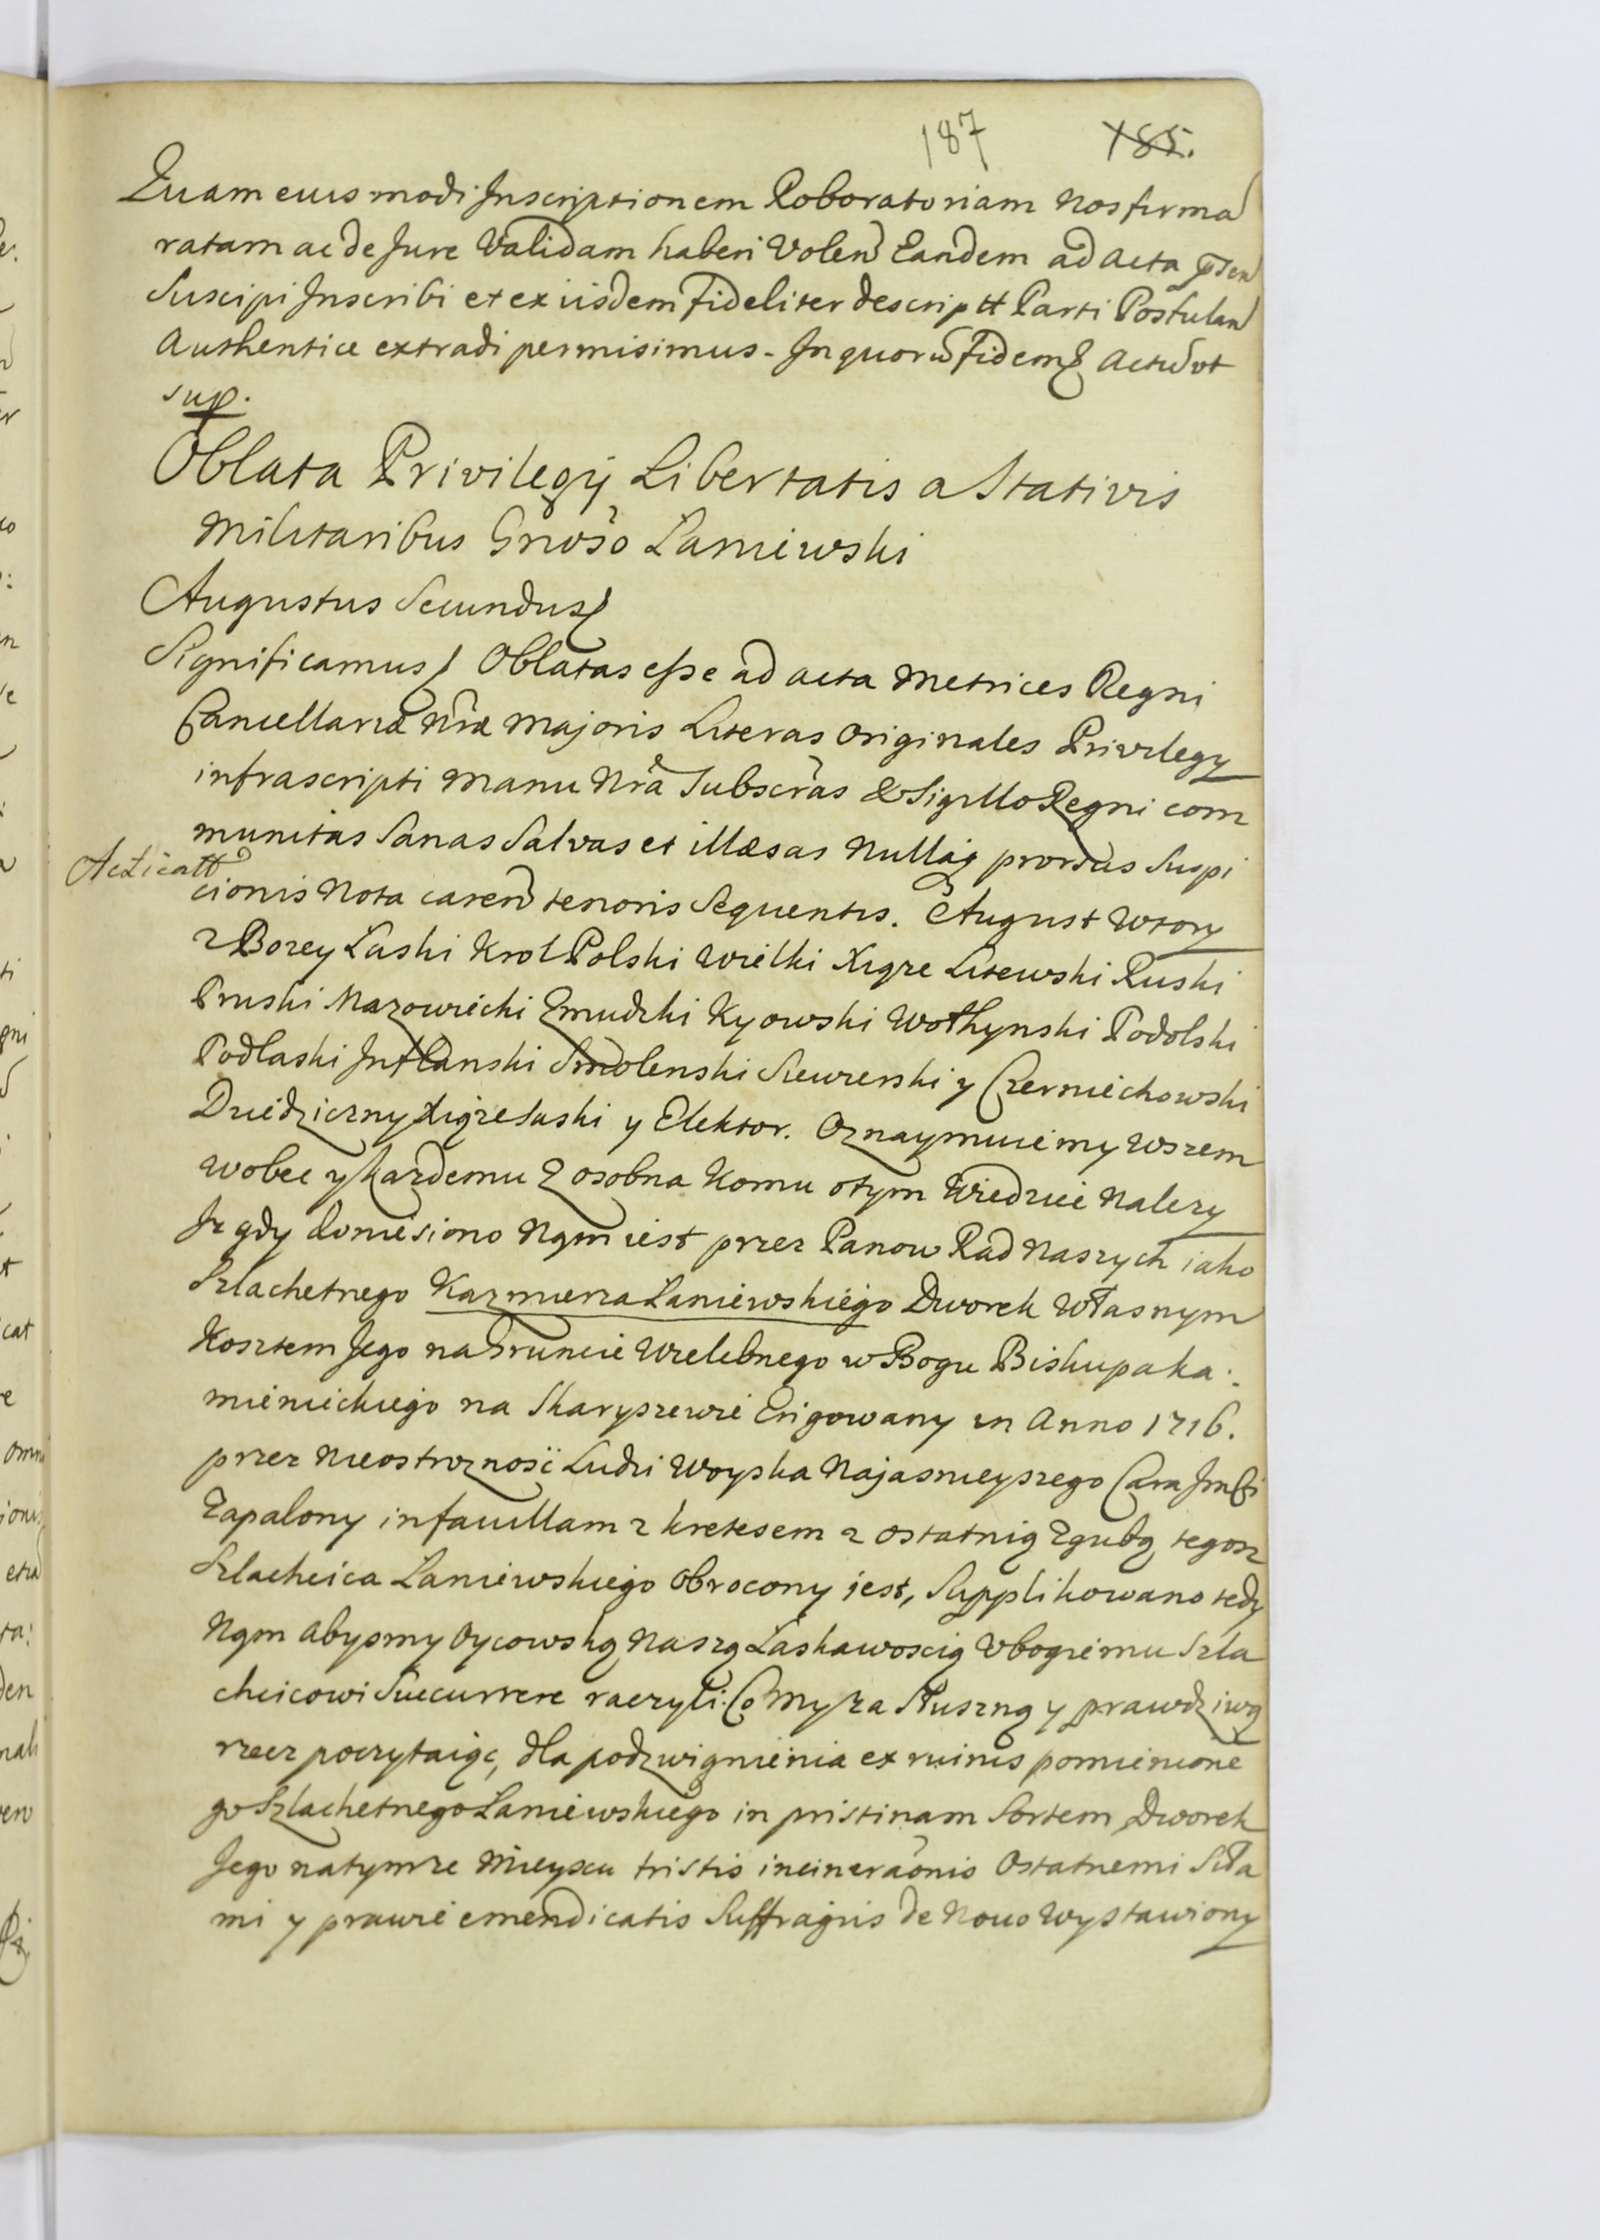 187 185.
Quam eius modi Inscriptionem Roboratoriam Nos firmã
ratam ac de Jure Validam haberi Volen Eandem ad Acta p͠sen
Suscipi Inscribi et ex iisdem Fideliter descriptt Parti Postulan
Authentice extradi permisimus. In quorũ Fidem Actũ ut
sup.
Oblata Privilegij Libertatis a Stativis
Militaribus Gnoso Łaniewski
Augustus Secundus
Significamus Oblatas esse ad acta Metrices Regni
Cancellariæ Nræ Majoris Literas Originales Privilegy
infrascripti Manu Nrã Subscrãs & Sigillo Regni com
munitas Sanas Salvas et illæsas Nullaq prorsus Suspi
Acticatt
cionis Nota caren tenoris Sequentis. August Wtory
z Bozey Łaski Krol Polski Wielki Xiąze Litewski Ruski
Pruski Mazowiecki Zmudzki Kyowski Wołhynski Podolski
Podlaski Inflanski Smolenski Siewierski y Czerniechowski
Dziedziczny Xiąze Saski y Elektor. Oznaymuiemy Wszem
Wobec y kazdemu Z osobna Komu otym Wiedziec Nalezy
Iz gdy doniesiono Nąm iest przez Panow Rad Naszych iako
Szlachetnego Kazmierza Łaniewskiego Dworek Własnym
Kosztem Jego na Gruncie Wielebnego w Bogu Biskupa ka:
mienieckiego na Skaryszewie Erigowany in Anno 1716.
przez Nieostroznosc Ludzi Woyska Najasnieyszego Cara Jmści
Zapalony in favillam z kretesem z ostatnią Zgubą tegosz
Szlacheica Łaniewskiego Obrocony jest, Supplikowano tedy
Nąm abysmy Oycowską Naszą Łaskawoscią Vbogiemu Szla
cheicowi Succurrere raczyli. Co My za Słuszną y prawdziwą
rzecz poczytaiąc, dla podzwignienia ex ruinis pomienione
go Szlachetnego Łaniewskiego in pristinam Sortem Dworek
Jego na tymze Mieyscu tristis incinerãonis Ostatnemi Siła
mi y prawie emendicatis Suffragiis de Novo Wystawiony